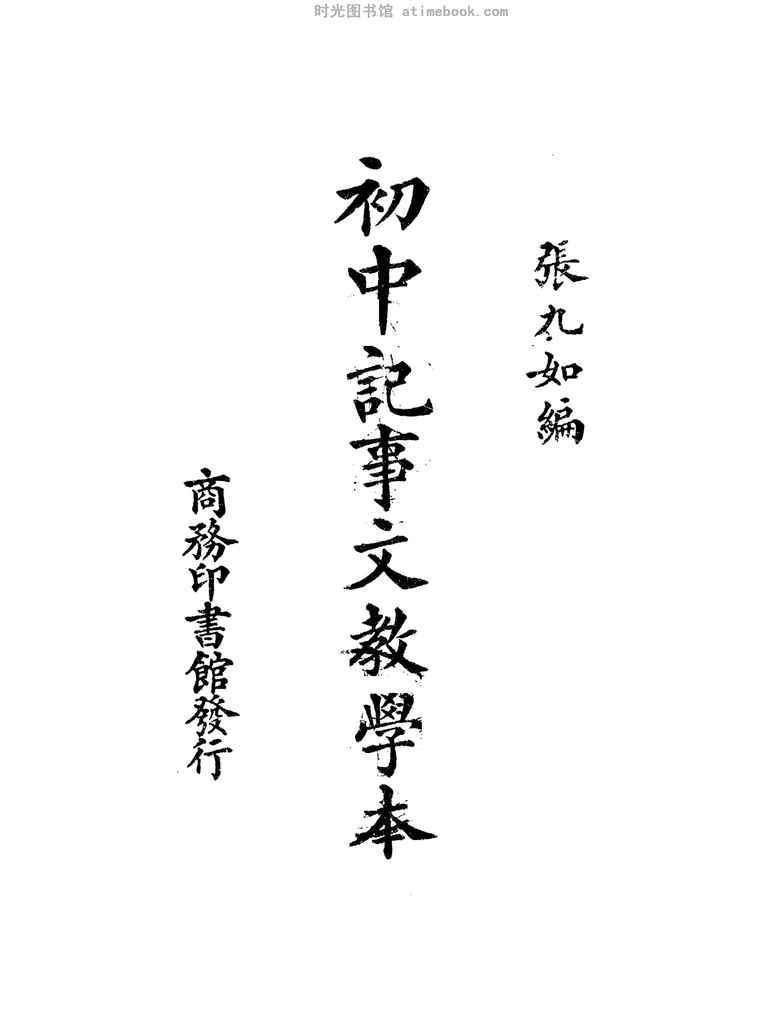 时光图书馆 atimebook.com
張九如編
初中記事文教學本
商務印書館發行